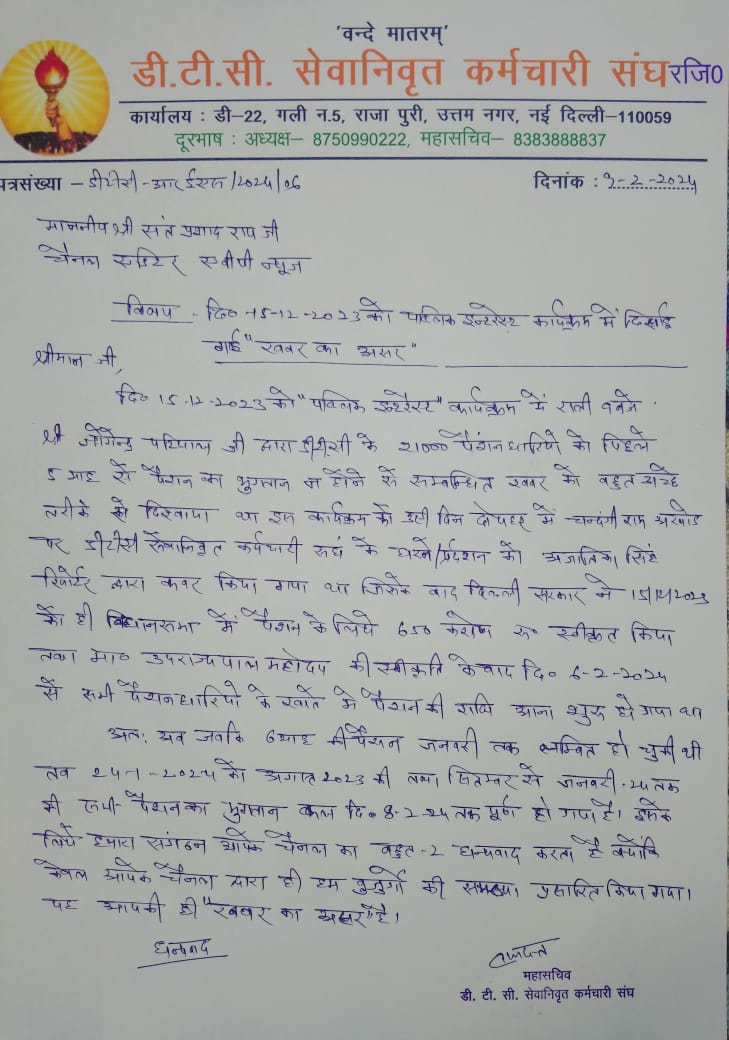 'वन्दे मातरम्'
डी.टी.सी. सेवानिवृत कर्मचारी संघ रजि0
कार्यालय : डी–22, गली न.5, राजा पुरी, उत्तम नगर, नई दिल्ली–110059
दूरभाष : अध्यक्ष– 8750990222, महासचिव– 8383888837
पत्रसंख्या – डीटीसी-आरईएस/2024/06
दिनांक : 9-2-2024
माननीय श्री संत प्रसाद राय जी
चैनल एडिटर एबीपी न्यूज
विषय : दि० 15-12-2023 को पब्लिक इन्टरेस्ट कार्यक्रम में दिखाई
गई "खबर का असर"
श्रीमान जी,
दि० 15-12-2023 को "पब्लिक इन्टरेस्ट" कार्यक्रम में रात्री 9 बजे
श्री जोगेन्द्र परियाल जी द्वारा डीटीसी के 21000 पैंशनधारियो को पिछले
5 माह से पैंशन का भुगतान न होने से सम्बन्धित खबर को बहुत अच्छे
तरीके से दिखाया था इस कार्यक्रम को उसी दिन दोपहर में चन्दगी राम अखाडे
पर डीटीसी सेवानिवृत कर्मचारी संघ के धरने/प्रदशन को सिंह
रिपोर्टर द्वारा कवर किया गया था जिसके बाद दिल्ली सरकार ने 15/12/2023
को ही विधानसभा में पैंशन के लिये 650 करोड रू० स्वीकृत किया
तथा मा० उपराज्यपाल महोदय की स्वीकृति के बाद दि० 6-2-2024
से सभी पैंशनधारियो के खाते मे पैंशन की राशि आना शुरू हो गया था
अत: अब जबकि 6 माह की पैंशन जनवरी तक लम्बित हो चुकी थी
तब 24-1-2024 को अगस्त 2023 की तथा सितम्बर से जनवरी-24 तक
की सभी पैंशन का भुगतान कल दि० 8-2-24 तक पूर्ण हो गया है। इसके
लिये हमारा संगठन आपके चैनल का बहुत-2 धन्यवाद करता है क्योंकि
केवल आपके चैनल द्वारा ही हम बुजुर्गो की समस्या प्रसारित किया गया।
यह आपकी ही "खबर का असर" है।
धन्यवाद
महासचिव
डी. टी. सी. सेवानिवृत कर्मचारी संघ